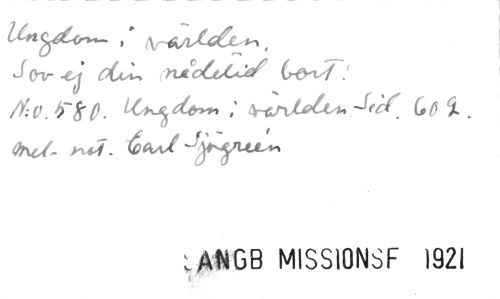 Ungdom i världen.
Sov ej din nådetid bort!
N:o. 580. Ungdom i världen Sid. 602.
mel. not. Carl Sjögreén
SANGB MISSIONSF 1921